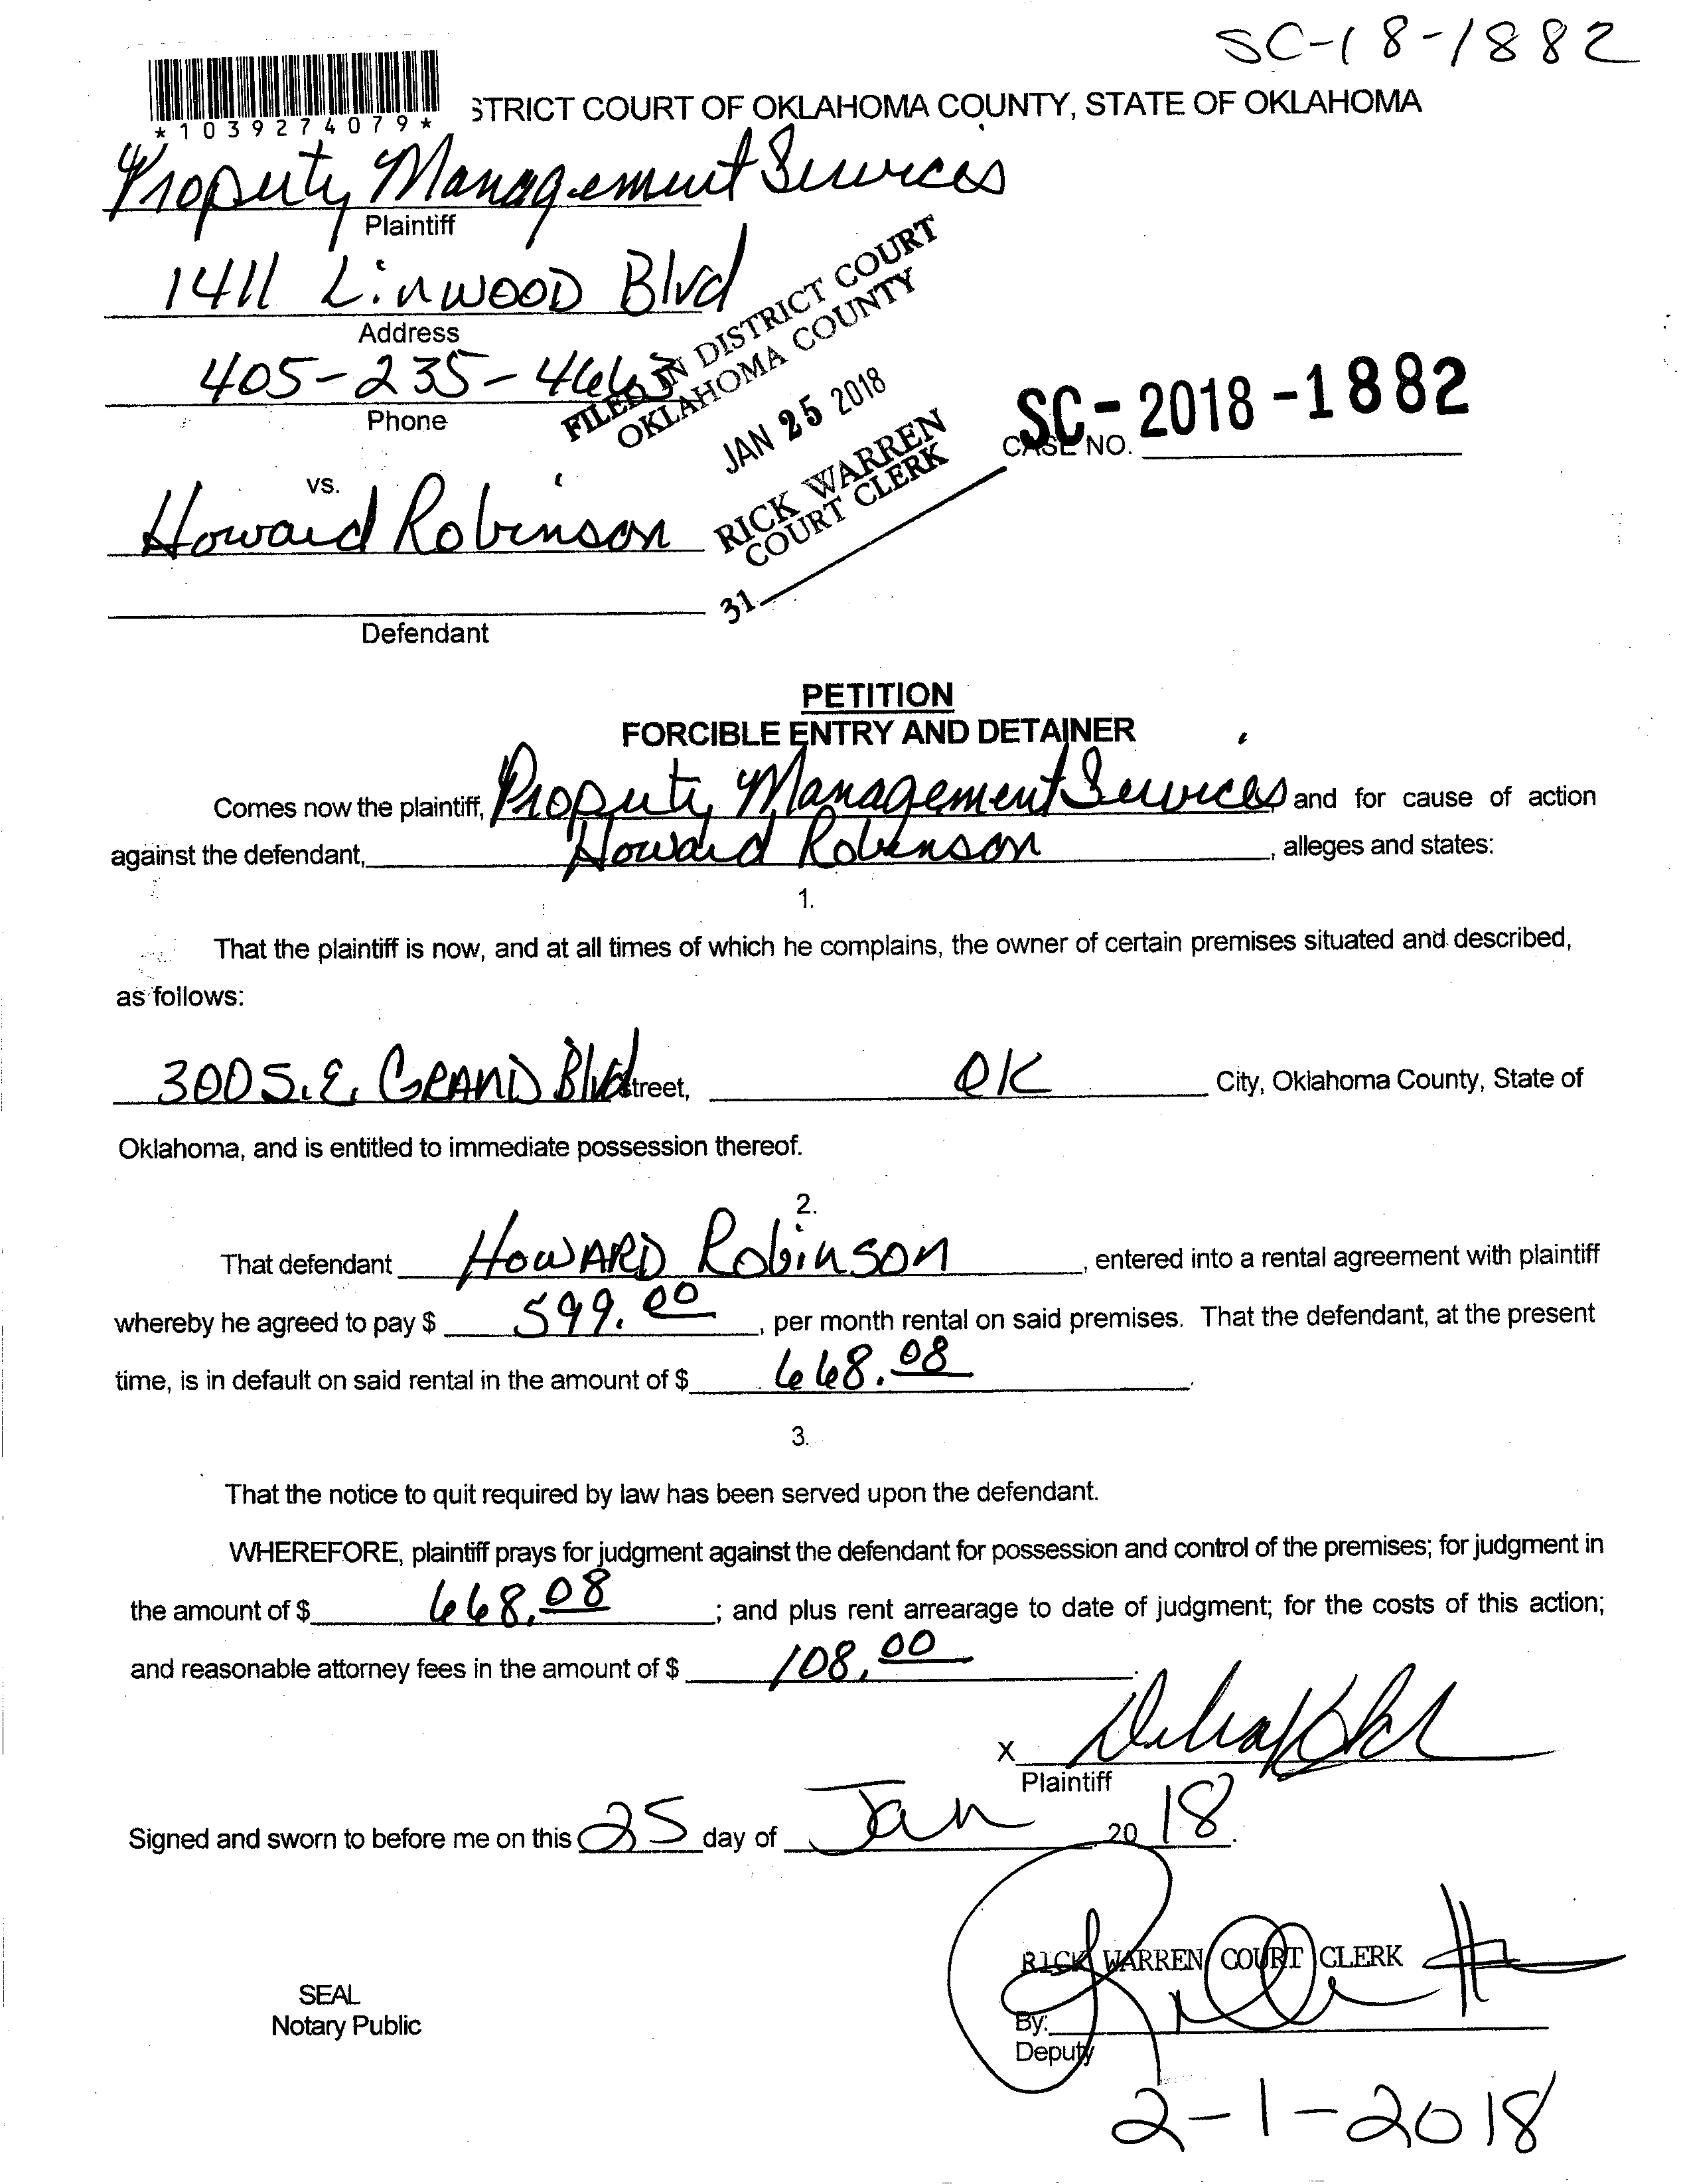 SC-18-1882
*1039274079*
STRICT COURT OF OKLAHOMA COUNTY, STATE OF OKLAHOMA
Property Management Services
Plaintiff
1411 Linwood Blvd
Address
405-235-4663
Phone
FILED IN DISTRICT COURT
OKLAHOMA COUNTY
JAN 25 2018
RICK WARREN
COURT CLERK
31
SC-2018-1882
CASE NO.
vs.
Howard Robinson
Defendant
PETITION
FORCIBLE ENTRY AND DETAINER
Comes now the plaintiff, Property Management Services and for cause of action
against the defendant, Howard Robinson, alleges and states:
1.
That the plaintiff is now, and at all times of which he complains, the owner of certain premises situated and described,
as follows:
300 S.E. GRAND Blvd Street, OK City, Oklahoma County, State of
Oklahoma, and is entitled to immediate possession thereof.
2.
That defendant HOWARD Robinson, entered into a rental agreement with plaintiff
whereby he agreed to pay $ 599.00, per month rental on said premises. That the defendant, at the present
time, is in default on said rental in the amount of $ 668.08.
3.
That the notice to quit required by law has been served upon the defendant.
WHEREFORE, plaintiff prays for judgment against the defendant for possession and control of the premises; for judgment in
the amount of $ 668.08; and plus rent arrearage to date of judgment; for the costs of this action;
and reasonable attorney fees in the amount of $ 108.00.
X
Plaintiff
Signed and sworn to before me on this 25 day of Jan 20 18.
RICK WARREN COURT CLERK
SEAL
Notary Public
By:
Deputy
2-1-2018